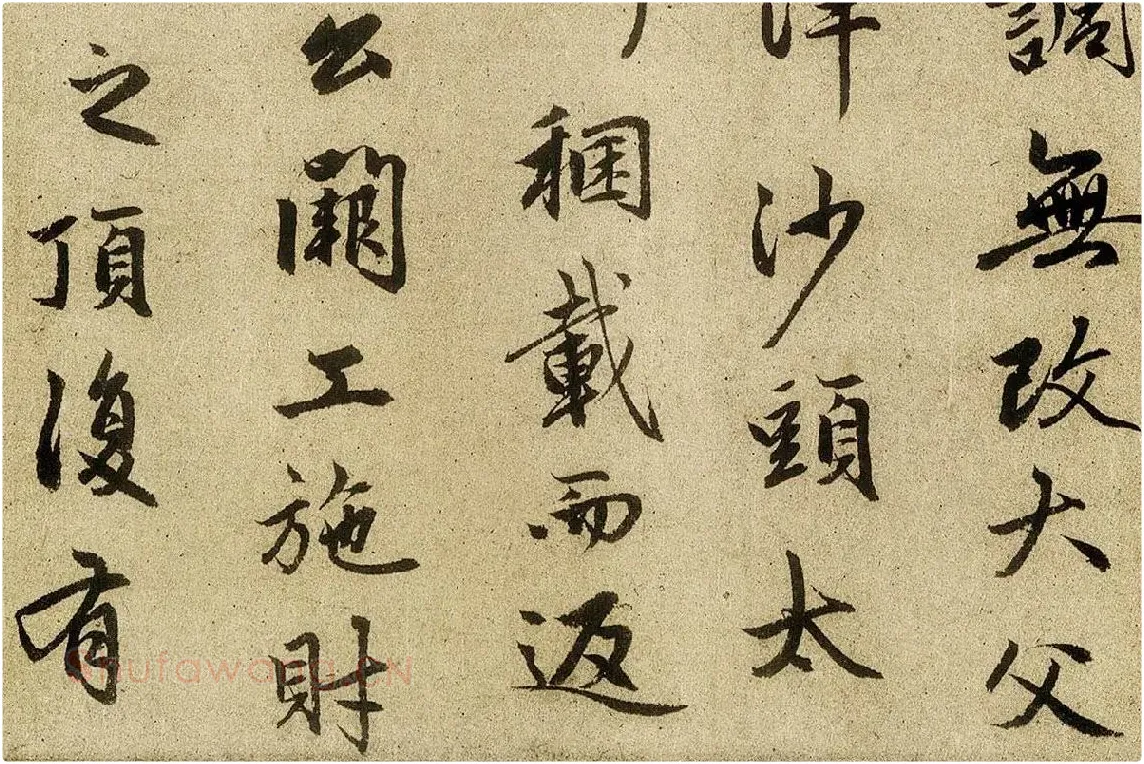 調無改大父
沙頭太
稛載而返
公工施財
之頂復有
Shufawang.CN